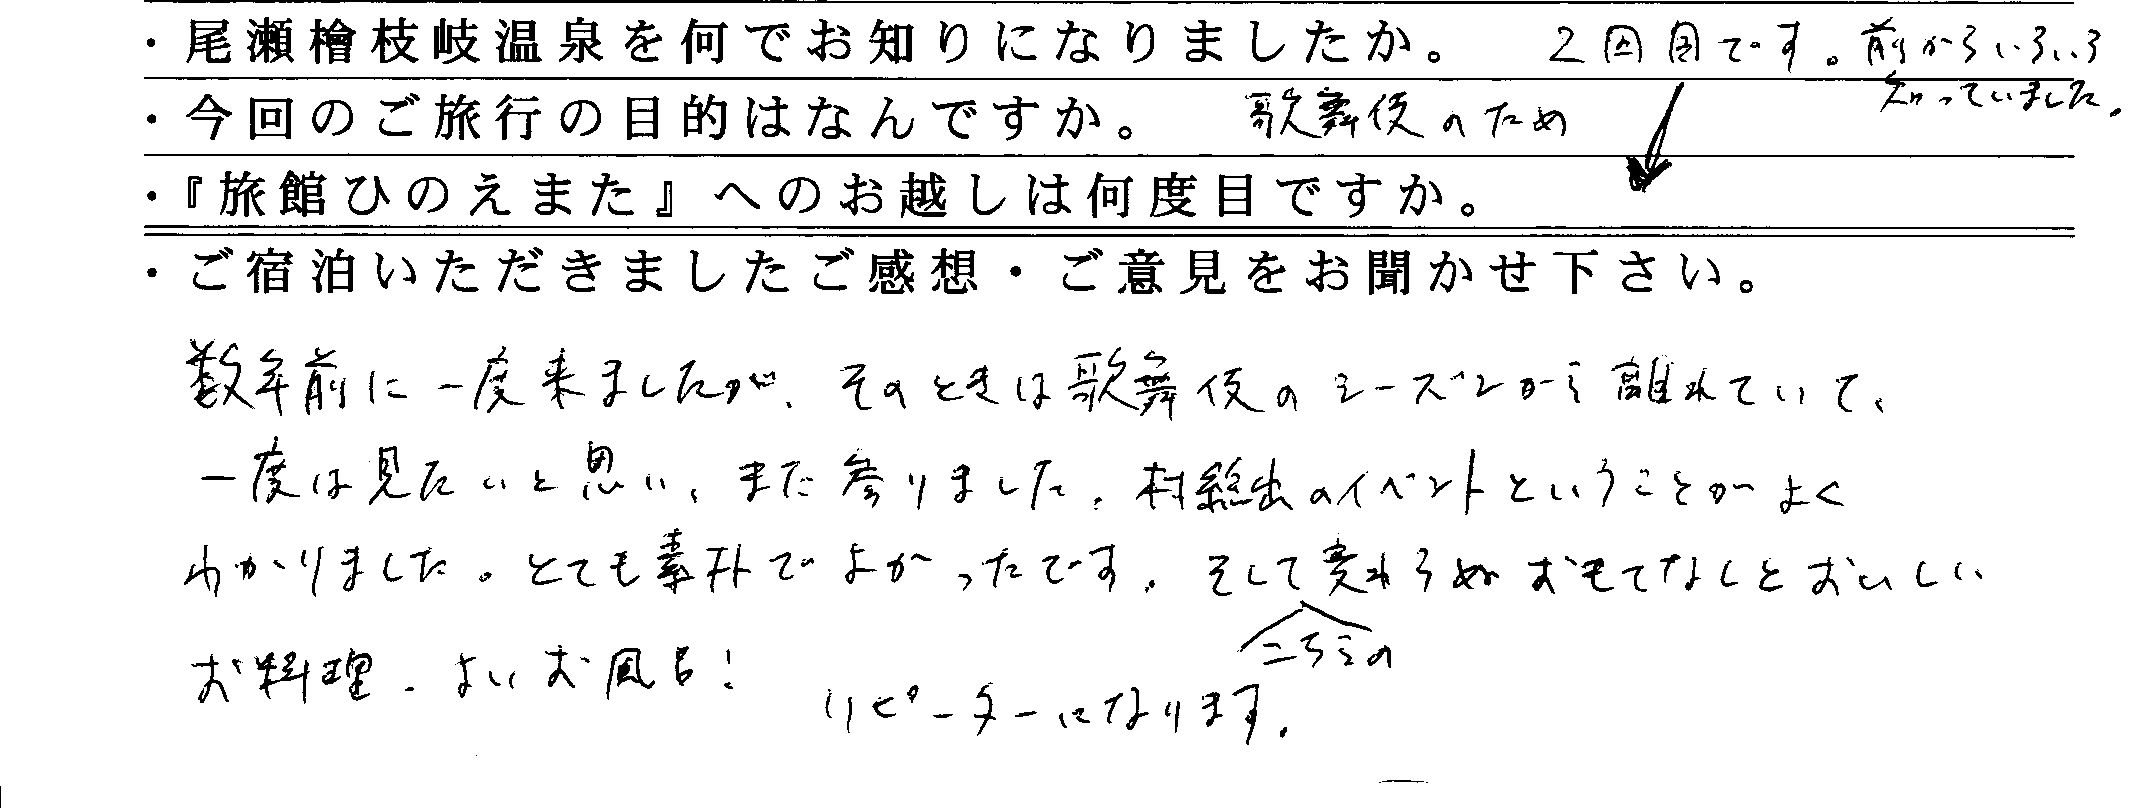 ・尾瀬檜枝岐温泉を何でお知りになりましたか。 2回目です。前からいろいろ
知っていました。
・今回のご旅行の目的はなんですか。 歌舞伎のため
・『旅館ひのえまた』へのお越しは何度目ですか。
・ご宿泊いただきましたご感想・ご意見をお聞かせ下さい。
数年前に一度来ましたが、そのときは歌舞伎のシーズンから離れていて、
一度は見たいと思い、また参りました。村総出のイベントということがよく
わかりました。とても素朴でよかったです。そして変わらぬおもてなしとおいしい
こちらの
お料理、よいお風呂!
リピーターになります。